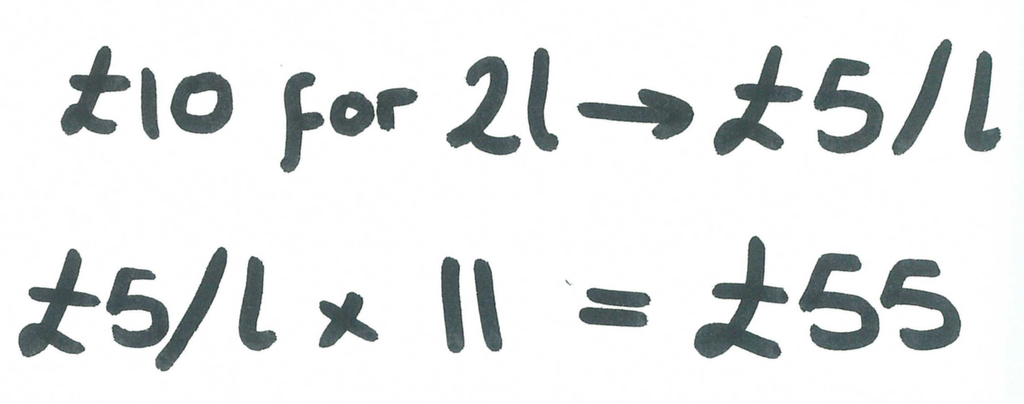 £10 for 2l → £5/l
£5/l × 11 = £55